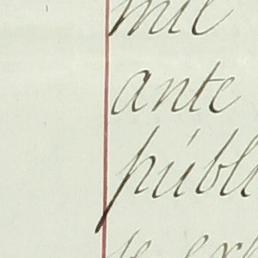 mil
ante
públi